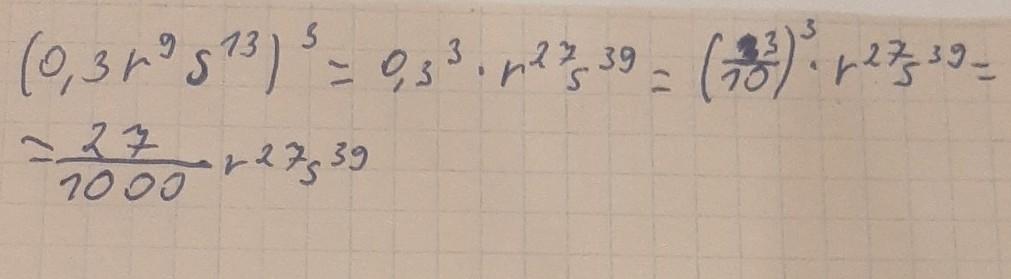 (0,3r⁹s¹³)³ = 0,3³ · r²⁷s³⁹ = (3/10)³ · r²⁷s³⁹ =
= 27/1000 r²⁷s³⁹